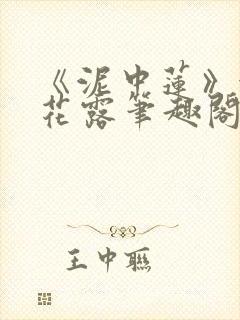 《泥中蓮》
花露筆趣閣
王中聯